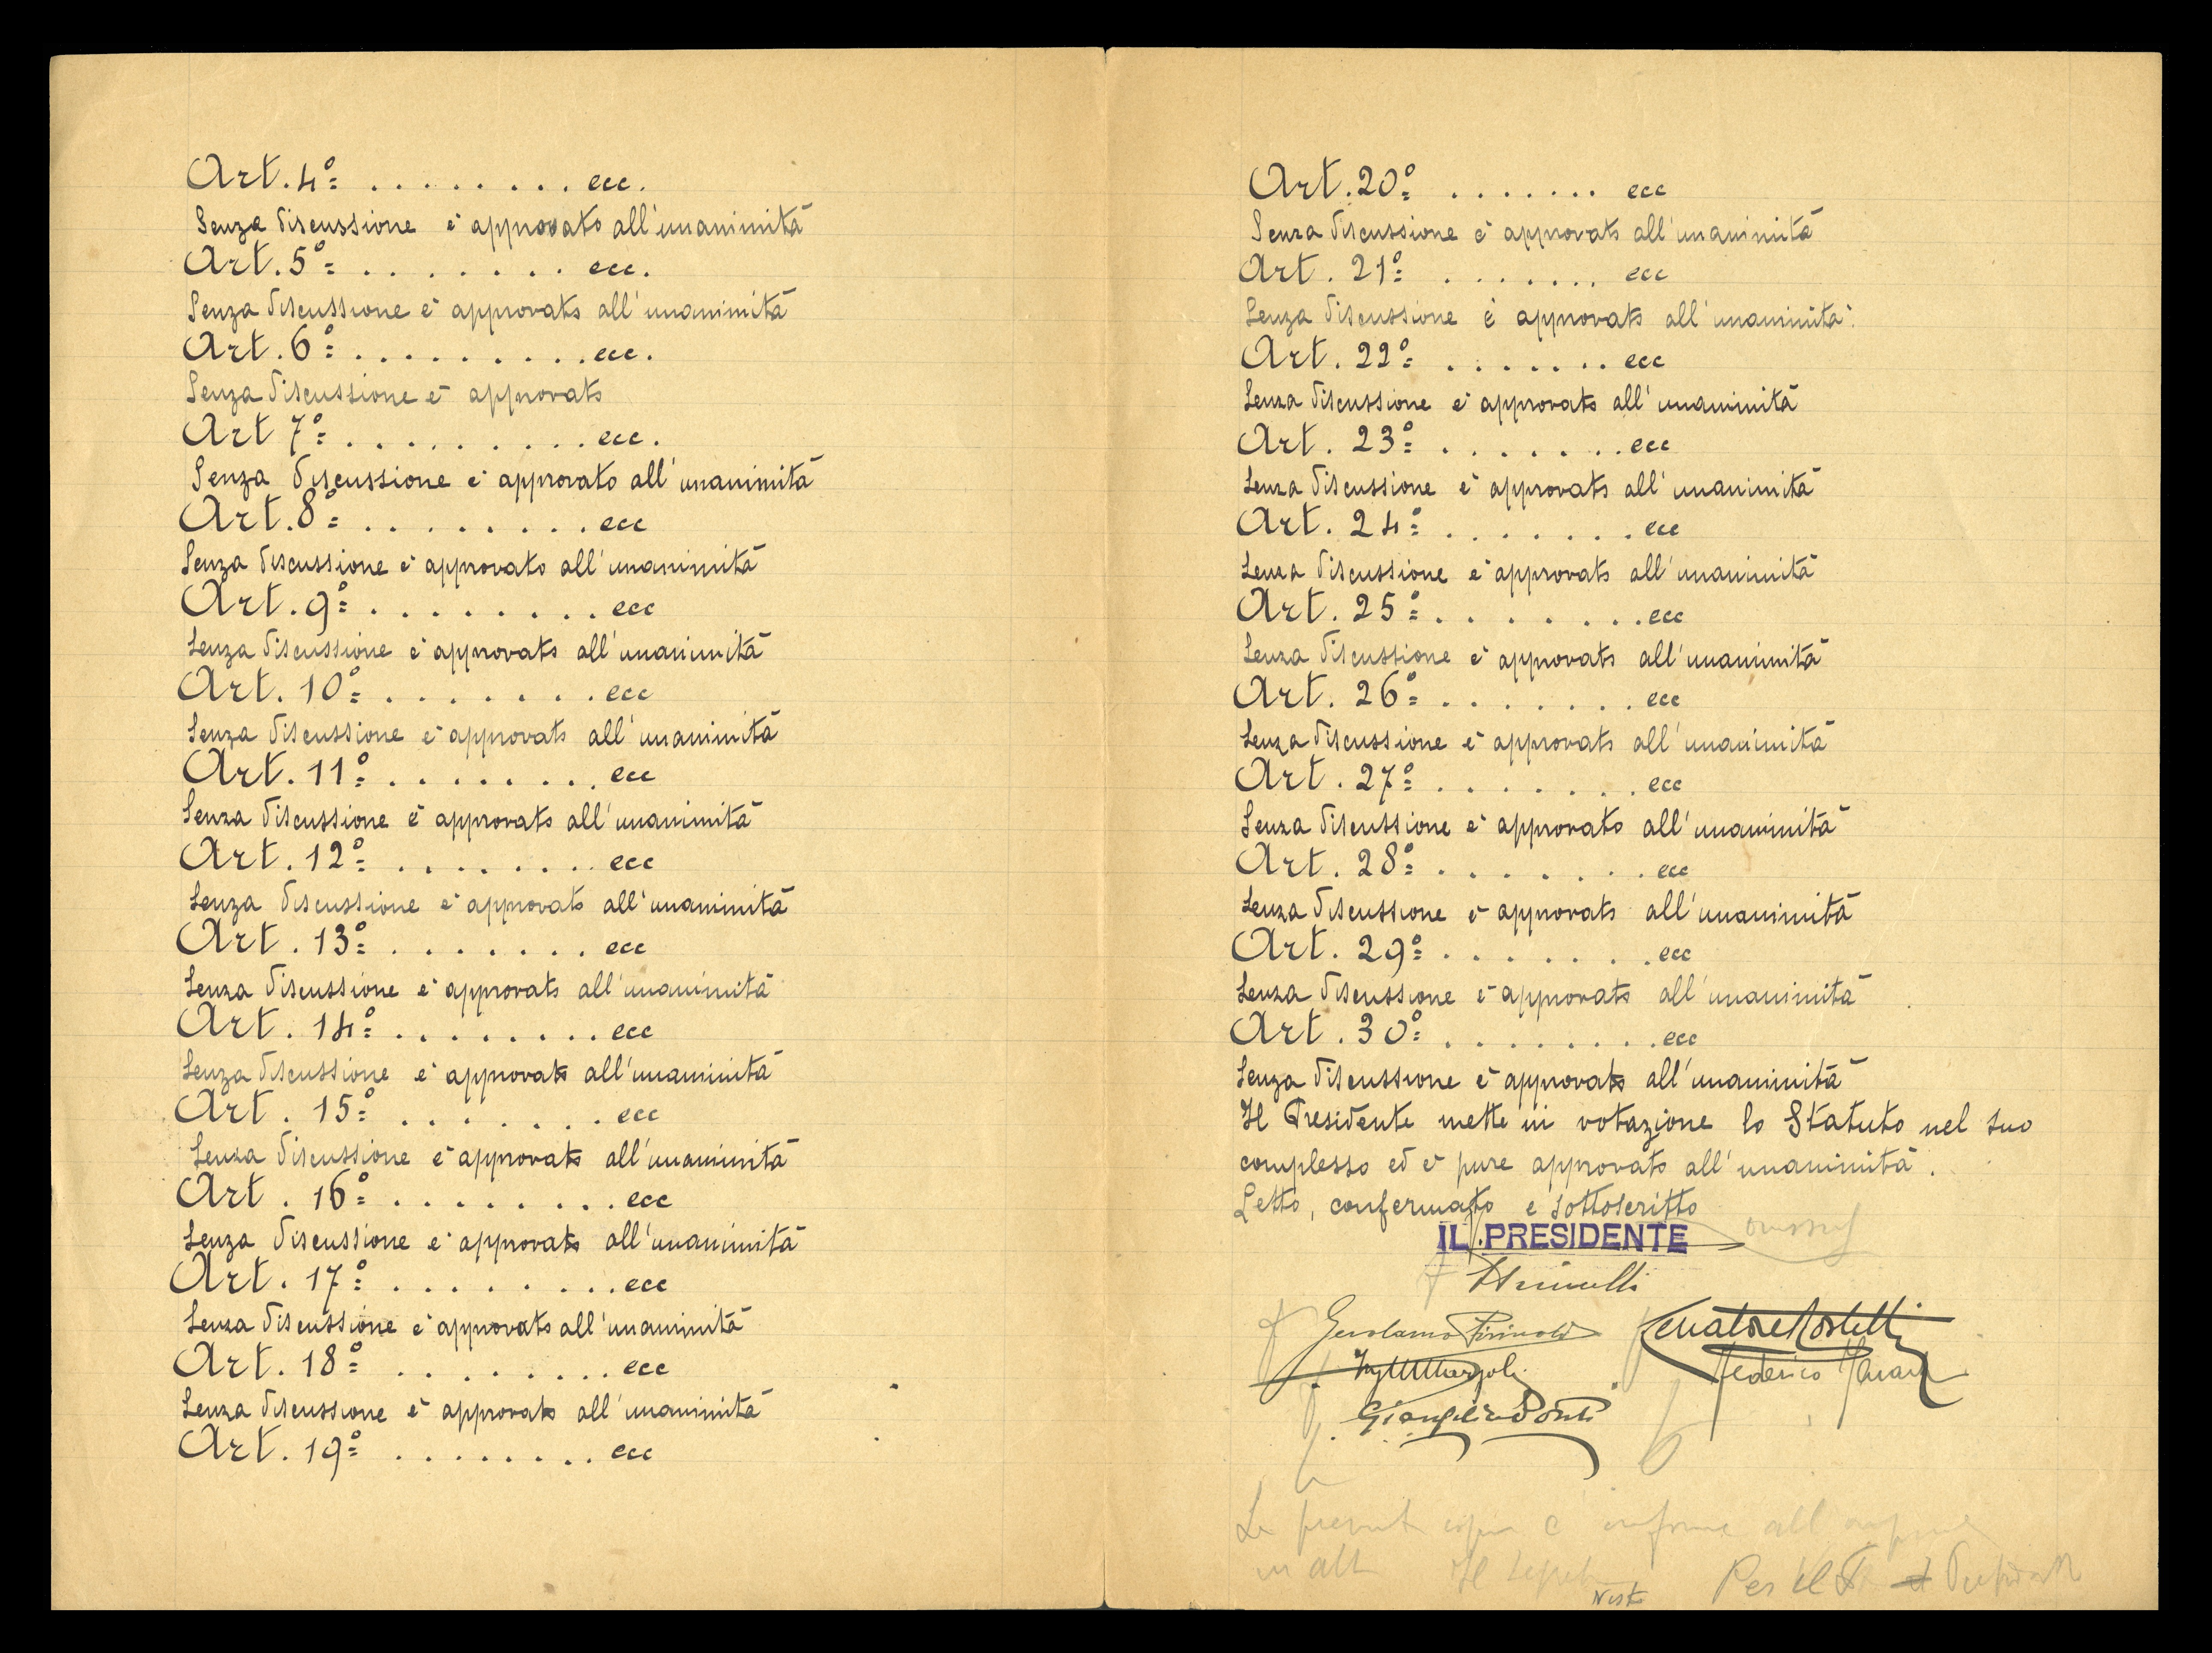 Art. 4º= . . . . . . . . ecc.
Senza discussione è approvato all'unanimità
Art. 5º= . . . . . . . ecc.
Senza discussione è approvato all'unanimità
Art. 6º= . . . . . . . . . ecc.
Senza discussione è approvato
Art 7º= . . . . . . . . . ecc.
Senza discussione è approvato all'unanimità
Art. 8º= . . . . . . . . ecc
Senza discussione è approvato all'unanimità
Art. 9º= . . . . . . . . ecc
Senza discussione è approvato all'unanimità
Art. 10º= . . . . . . . . ecc
Senza discussione è approvato all'unanimità
Art. 11º= . . . . . . . . ecc
Senza discussione è approvato all'unanimità
Art. 12º= . . . . . . . . ecc
Senza discussione è approvato all'unanimità
Art. 13º= . . . . . . . ecc
Senza discussione è approvato all'unanimità
Art. 14º= . . . . . . . . ecc
Senza discussione è approvato all'unanimità
Art. 15º= . . . . . . . ecc
Senza discussione è approvato all'unanimità
Art. 16º= . . . . . . . . ecc
Senza discussione è approvato all'unanimità
Art. 17º= . . . . . . . . ecc
Senza discussione è approvato all'unanimità
Art. 18º= . . . . . . . . ecc
Senza discussione è approvato all'unanimità
Art. 19º= . . . . . . . . ecc
Art. 20º= . . . . . . . ecc
Senza discussione è approvato all'unanimità
Art. 21º= . . . . . . . ecc
Senza discussione è approvato all'unanimità.
Art. 22º= . . . . . . . ecc
Senza discussione è approvato all'unanimità
Art. 23º= . . . . . . . ecc
Senza discussione è approvato all'unanimità
Art. 24º= . . . . . . . ecc
Senza discussione è approvato all'unanimità
Art. 25º= . . . . . . . . ecc
Senza discussione è approvato all'unanimità
Art. 26º= . . . . . . . ecc
Senza discussione è approvato all'unanimità
Art. 27º= . . . . . . . ecc
Senza discussione è approvato all'unanimità
Art. 28º= . . . . . . . . ecc
Senza discussione è approvato all'unanimità
Art. 29º= . . . . . . . . ecc
Senza discussione è approvato all'unanimità
Art. 30º= . . . . . . . . ecc
Senza discussione è approvato all'unanimità
Il Presidente mette in votazione lo Statuto nel suo
complesso ed è pure approvato all'unanimità.
Letto, confermato e sottoscritto
IL PRESIDENTE
Gerolamo
Senatore
Federico
è conforme all
Il
Visto Per il